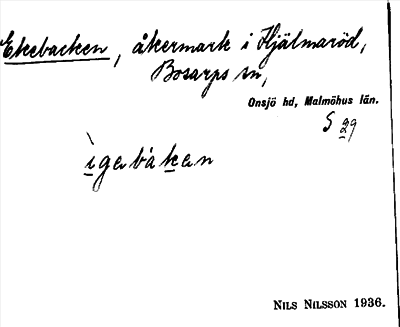 Ekebacken, åkermark i Hjälmaröd,
Bosarps sn,
Onsjö hd, Malmöhus län.
S 29
ìgabàkan
NILS NILSSON 1936.